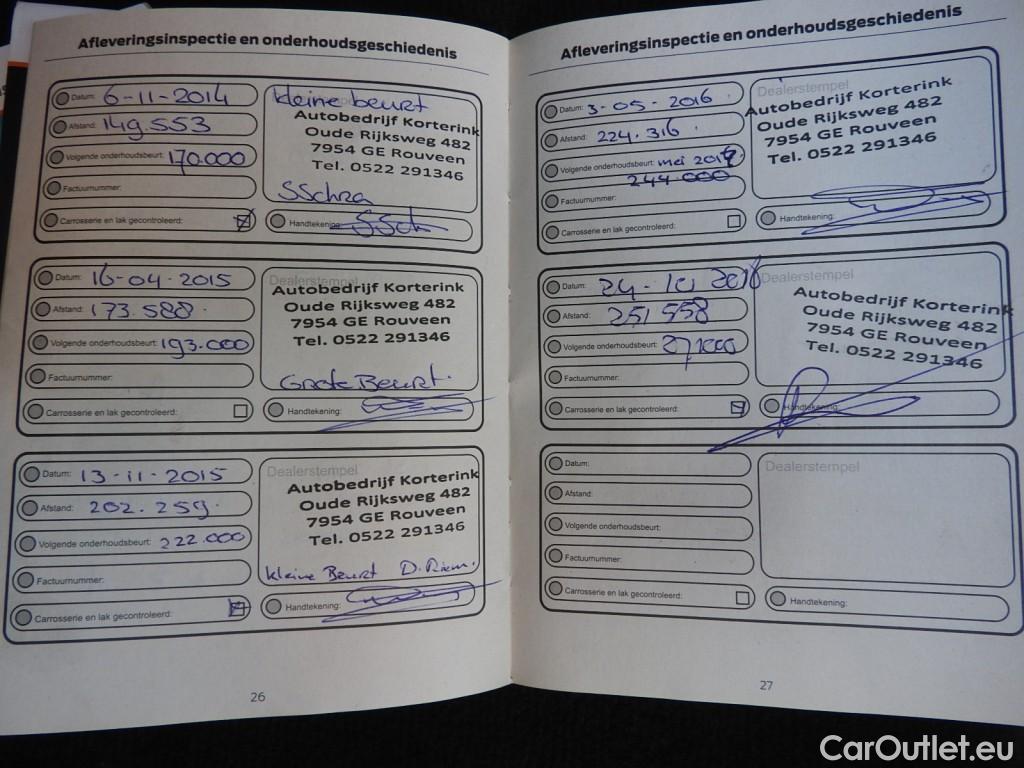 Afleveringsinspectie en onderhoudsgeschiedenis
Datum: 6-11-2014
Afstand: 149.553
Volgende onderhoudsbeurt: 170.000
Factuurnummer:
Carrosserie en lak gecontroleerd:
kleine beurt
Autobedrijf Korterink
Oude Rijksweg 482
7954 GE Rouveen
Tel. 0522 291346
Handtekening:
Datum: 16-04-2015
Afstand: 173.588.
Volgende onderhoudsbeurt: 193.000
Factuurnummer:
Carrosserie en lak gecontroleerd:
Dealerstempel
Autobedrijf Korterink
Oude Rijksweg 482
7954 GE Rouveen
Tel. 0522 291346
Grote Beurt.
Handtekening:
Datum: 13-11-2015
Afstand: 202.259.
Volgende onderhoudsbeurt: 222.000
Factuurnummer:
Carrosserie en lak gecontroleerd:
Dealerstempel
Autobedrijf Korterink
Oude Rijksweg 482
7954 GE Rouveen
Tel. 0522 291346
kleine Beurt D.
Handtekening:
26
Afleveringsinspectie en onderhoudsgeschiedenis
Datum: 3-05-2016.
Afstand: 224.316.
Volgende onderhoudsbeurt: mei 2017.
244.000
Factuurnummer:
Carrosserie en lak gecontroleerd:
Dealerstempel
Autobedrijf Korterink
Oude Rijksweg 482
7954 GE Rouveen
Tel. 0522 291346
Handtekening:
Datum: 24-10 2018
Afstand: 251 558
Volgende onderhoudsbeurt:
Factuurnummer:
Carrosserie en lak gecontroleerd:
Dealerstempel
Autobedrijf Korterink
Oude Rijksweg 482
7954 GE Rouveen
Tel. 0522 291346
Handtekening:
Datum:
Afstand:
Volgende onderhoudsbeurt:
Factuurnummer:
Carrosserie en lak gecontroleerd:
Dealerstempel
Handtekening:
27
CarOutlet.eu